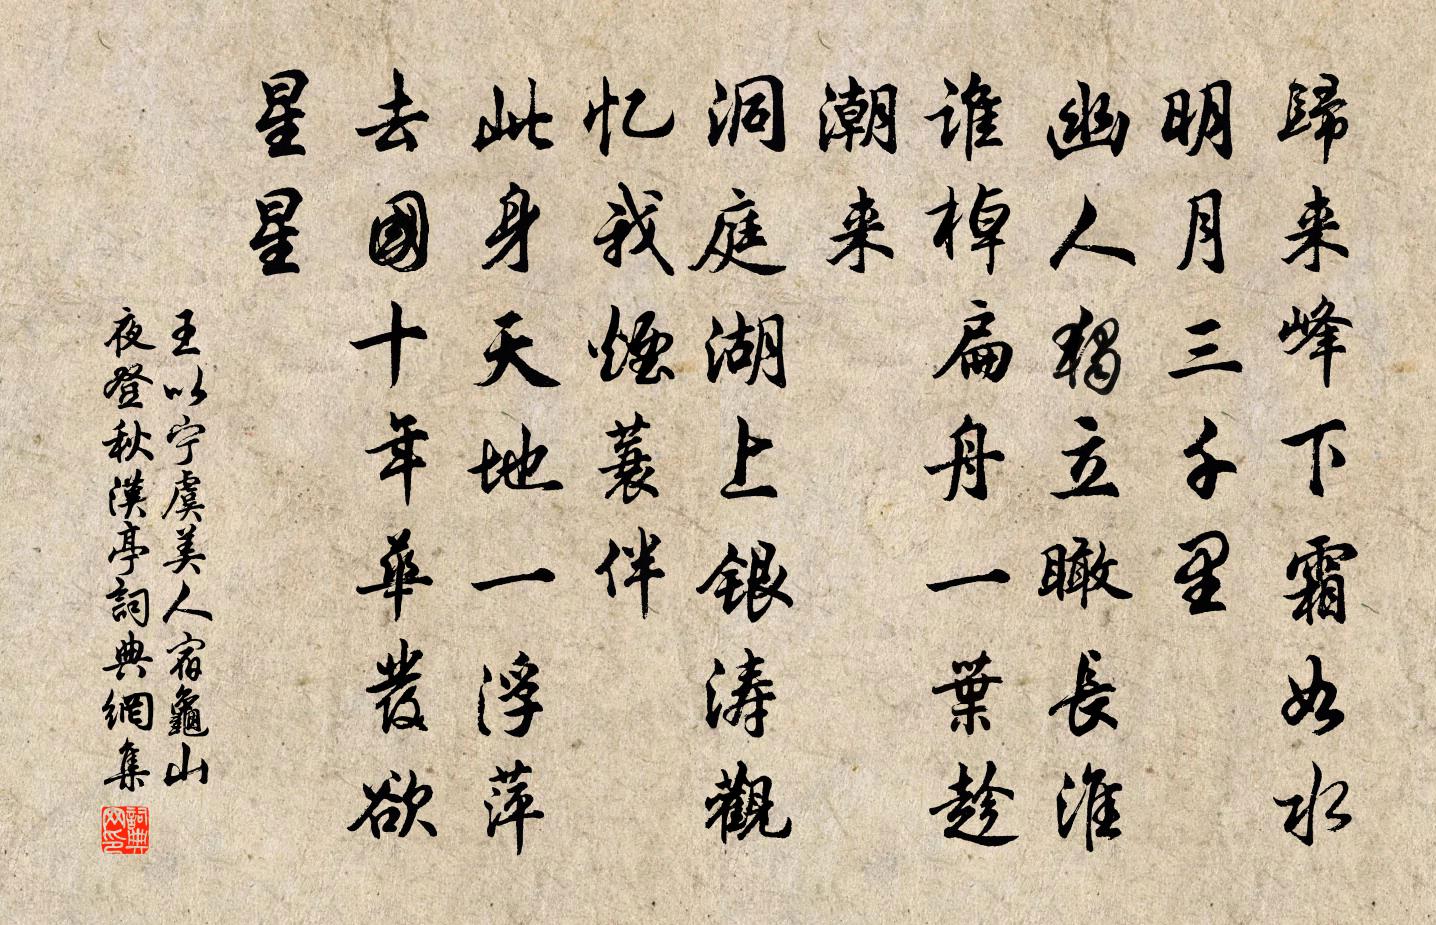 歸来峰下霜如水
明月三千里
幽人獨立瞰長淮
谁棹扁舟一葉趁
潮来
洞庭湖上银涛觀
忆我煙蓑伴
此身天地一浮萍
去國十年華髮欲
星星
王以宁虞美人宿龜山
夜登秋漢亭詞典網集
詞典网印